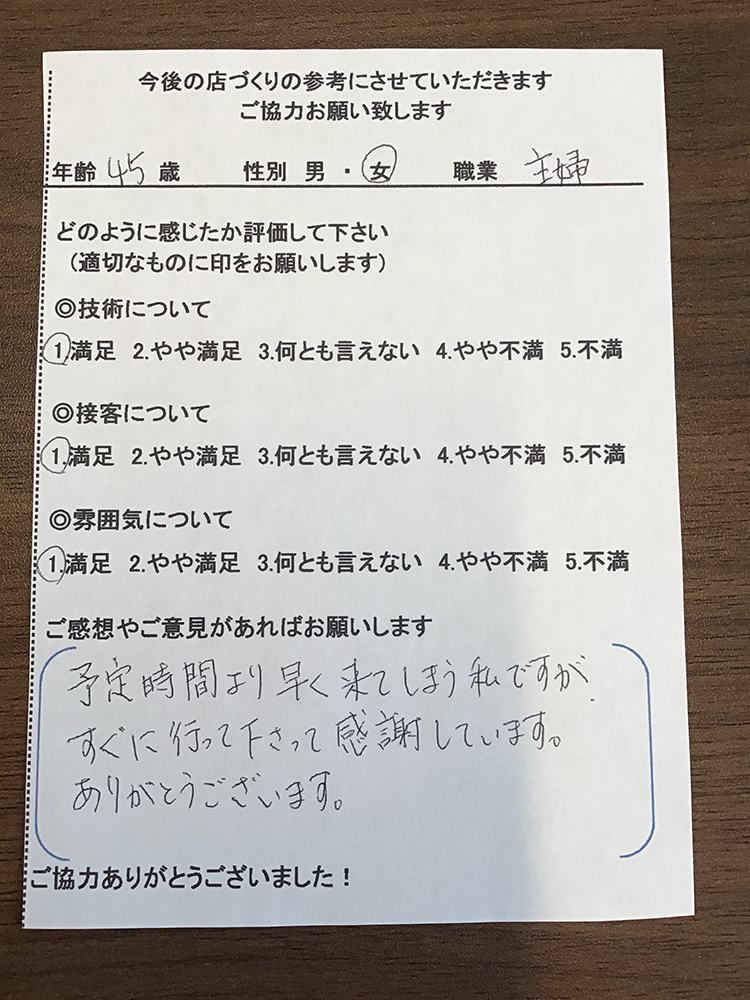 今後の店づくりの参考にさせていただきます
ご協力お願い致します
年齢 45 歳 性別 男 ・ 女 職業 主婦
どのように感じたか評価して下さい
（適切なものに印をお願いします）
◎技術について
1.満足 2.やや満足 3.何とも言えない 4.やや不満 5.不満
◎接客について
1.満足 2.やや満足 3.何とも言えない 4.やや不満 5.不満
◎雰囲気について
1.満足 2.やや満足 3.何とも言えない 4.やや不満 5.不満
ご感想やご意見があればお願いします
予定時間より早く来てしまう私ですが、
すぐに行って下さって感謝しています。
ありがとうございます。
ご協力ありがとうございました！